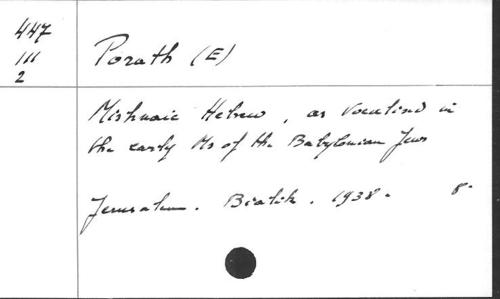 447
III
2
Porath (E)
Mishnaic Hebrew, as vocalised in
the early Ms of the Babylonian Jews
Jerusalem. Bialik. 1938. 8.